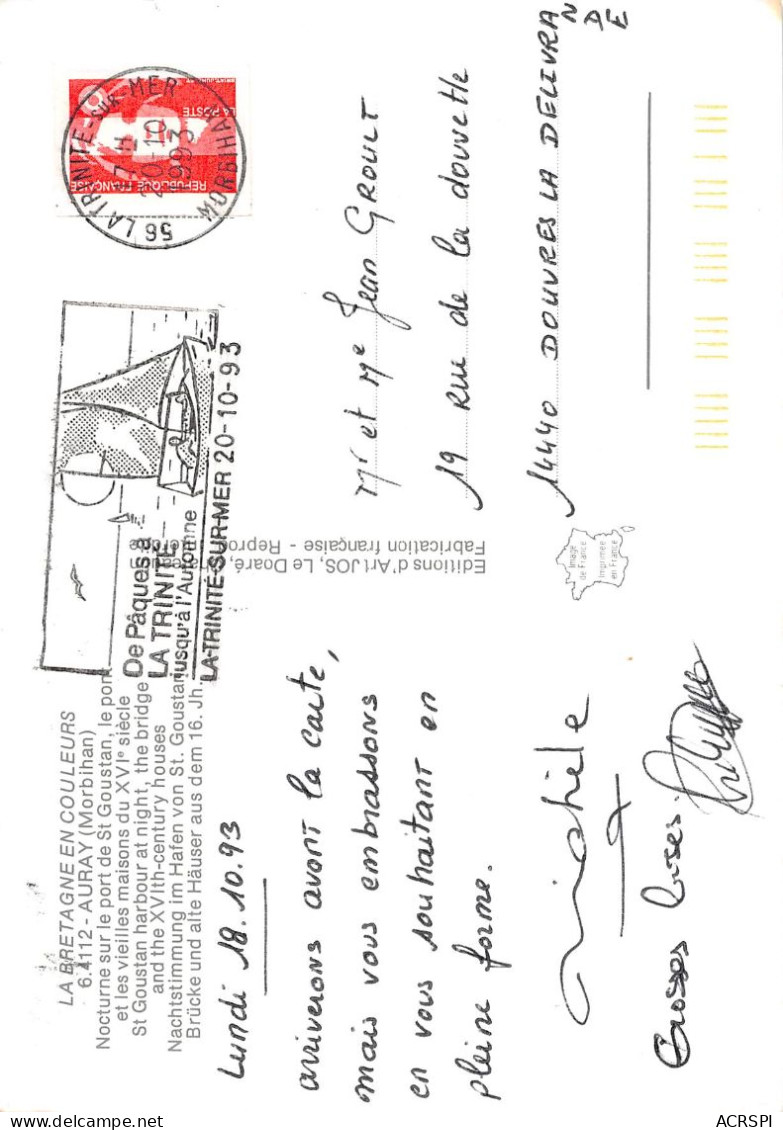 LA BRETAGNE EN COULEURS
6.4112 - AURAY (Morbihan)
Nocturne sur le port de St Goustan, le pont
et les vieilles maisons du XVIe siècle
St Goustan harbour at night, the bridge
and the XVIth-century houses
Nachtstimmung im Hafen von St. Goustan
Brücke und alte Häuser aus dem 16. Jh.
Lundi 18.10.93
arriverons avant la carte,
mais vous embrassons
en vous souhaitant en
pleine forme.
Michèle
Grosses bises.
De Pâques à
LA TRINITE
jusqu'à l'Automne
LA-TRINITÉ-SUR-MER 20-10-93
56 LA TRINITE-SUR-MER
17H
20-10
1993
MORBIHAN
LA POSTE
REPUBLIQUE FRANÇAISE
Editions d'Art JOS, Le Doaré,
Fabrication française - Reprod
Image
de France
Imprimée
en France
Mr et Me Jean GROULT
19 Rue de la douvette
14440 DOUVRES LA DELIVRA
N
D
E
ACRSPI